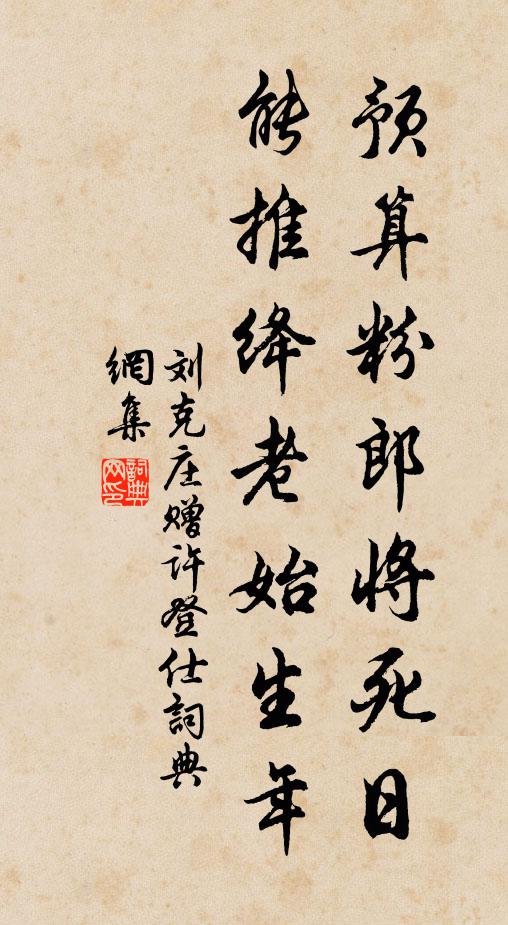 预算粉郎将死日
能推绛老始生年
刘克庄赠许登仕詞典
網集
詞典网印